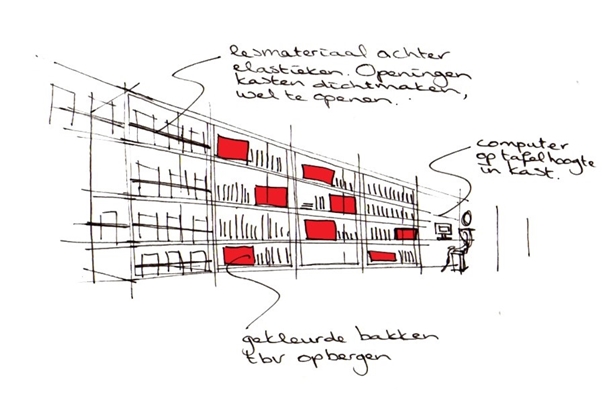 lesmateriaal achter
elastieken. Openingen
kasten dichtmaken,
wel te openen..
computer
op tafelhoogte
in kast.
gekleurde bakken
tbv opbergen